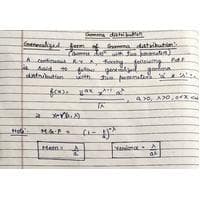 Gamma distribution
Generalized form of Gamma distribution:
(Gamma distⁿ with two parameters)
A continuous R.V X having following P.d.F
is said to follow generalized gamma
distribution with two parameters 'a' & 'λ' :-
f(x) = e^-ax x^λ-1 a^λ / Γλ , a>0, λ>0, 0<x<∞
X~γ(a, λ)
Note: M.G.F = (1 - t/a)^-λ
Mean = λ/a Variance = λ/a²